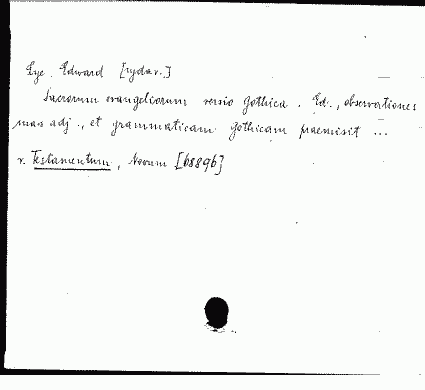 Lye, Edward [wydav.]
Sacrorum evangeliorum versio Gothica. Ed., observationes
suas adj., et grammaticam Gothicam praemisit ...
v. Testamentum, Novum [6889b]